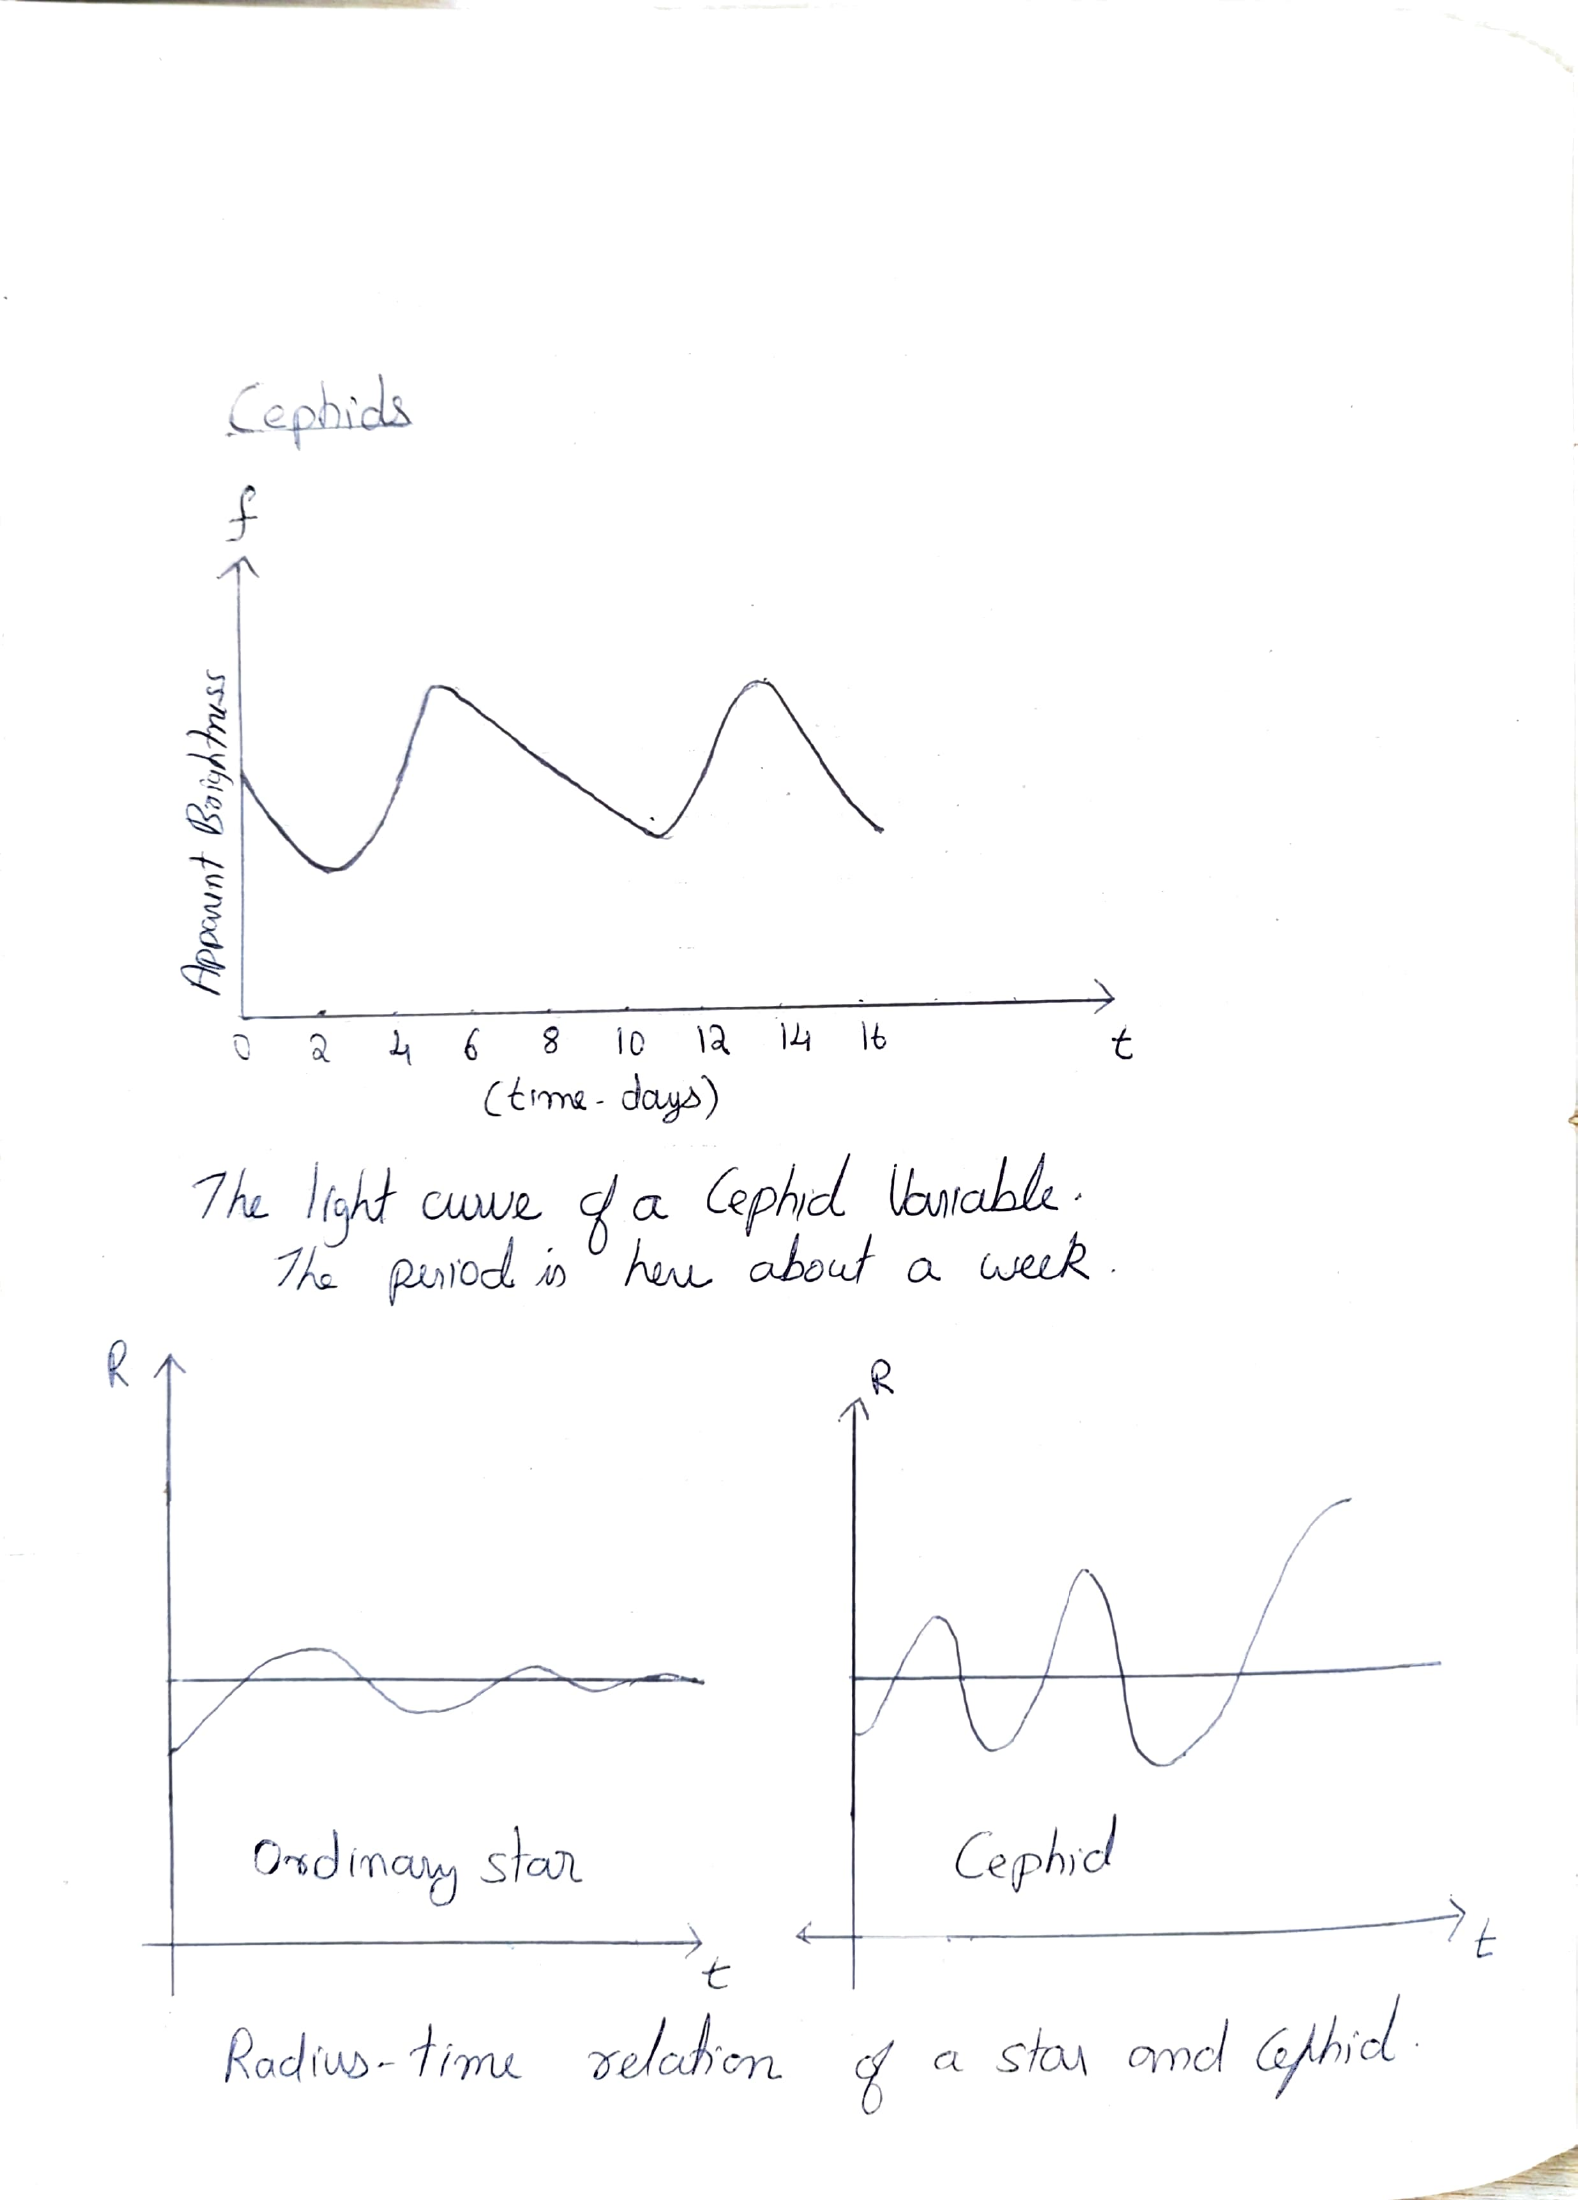 Cephids
f
Apparent Brightness
0 2 4 6 8 10 12 14 16 t
(time-days)
The light curve of a Cephid Variable.
The period is here about a week.
R
R
Ordinary star
Cephid
t
t
Radius-time relation of a star and Cephid.